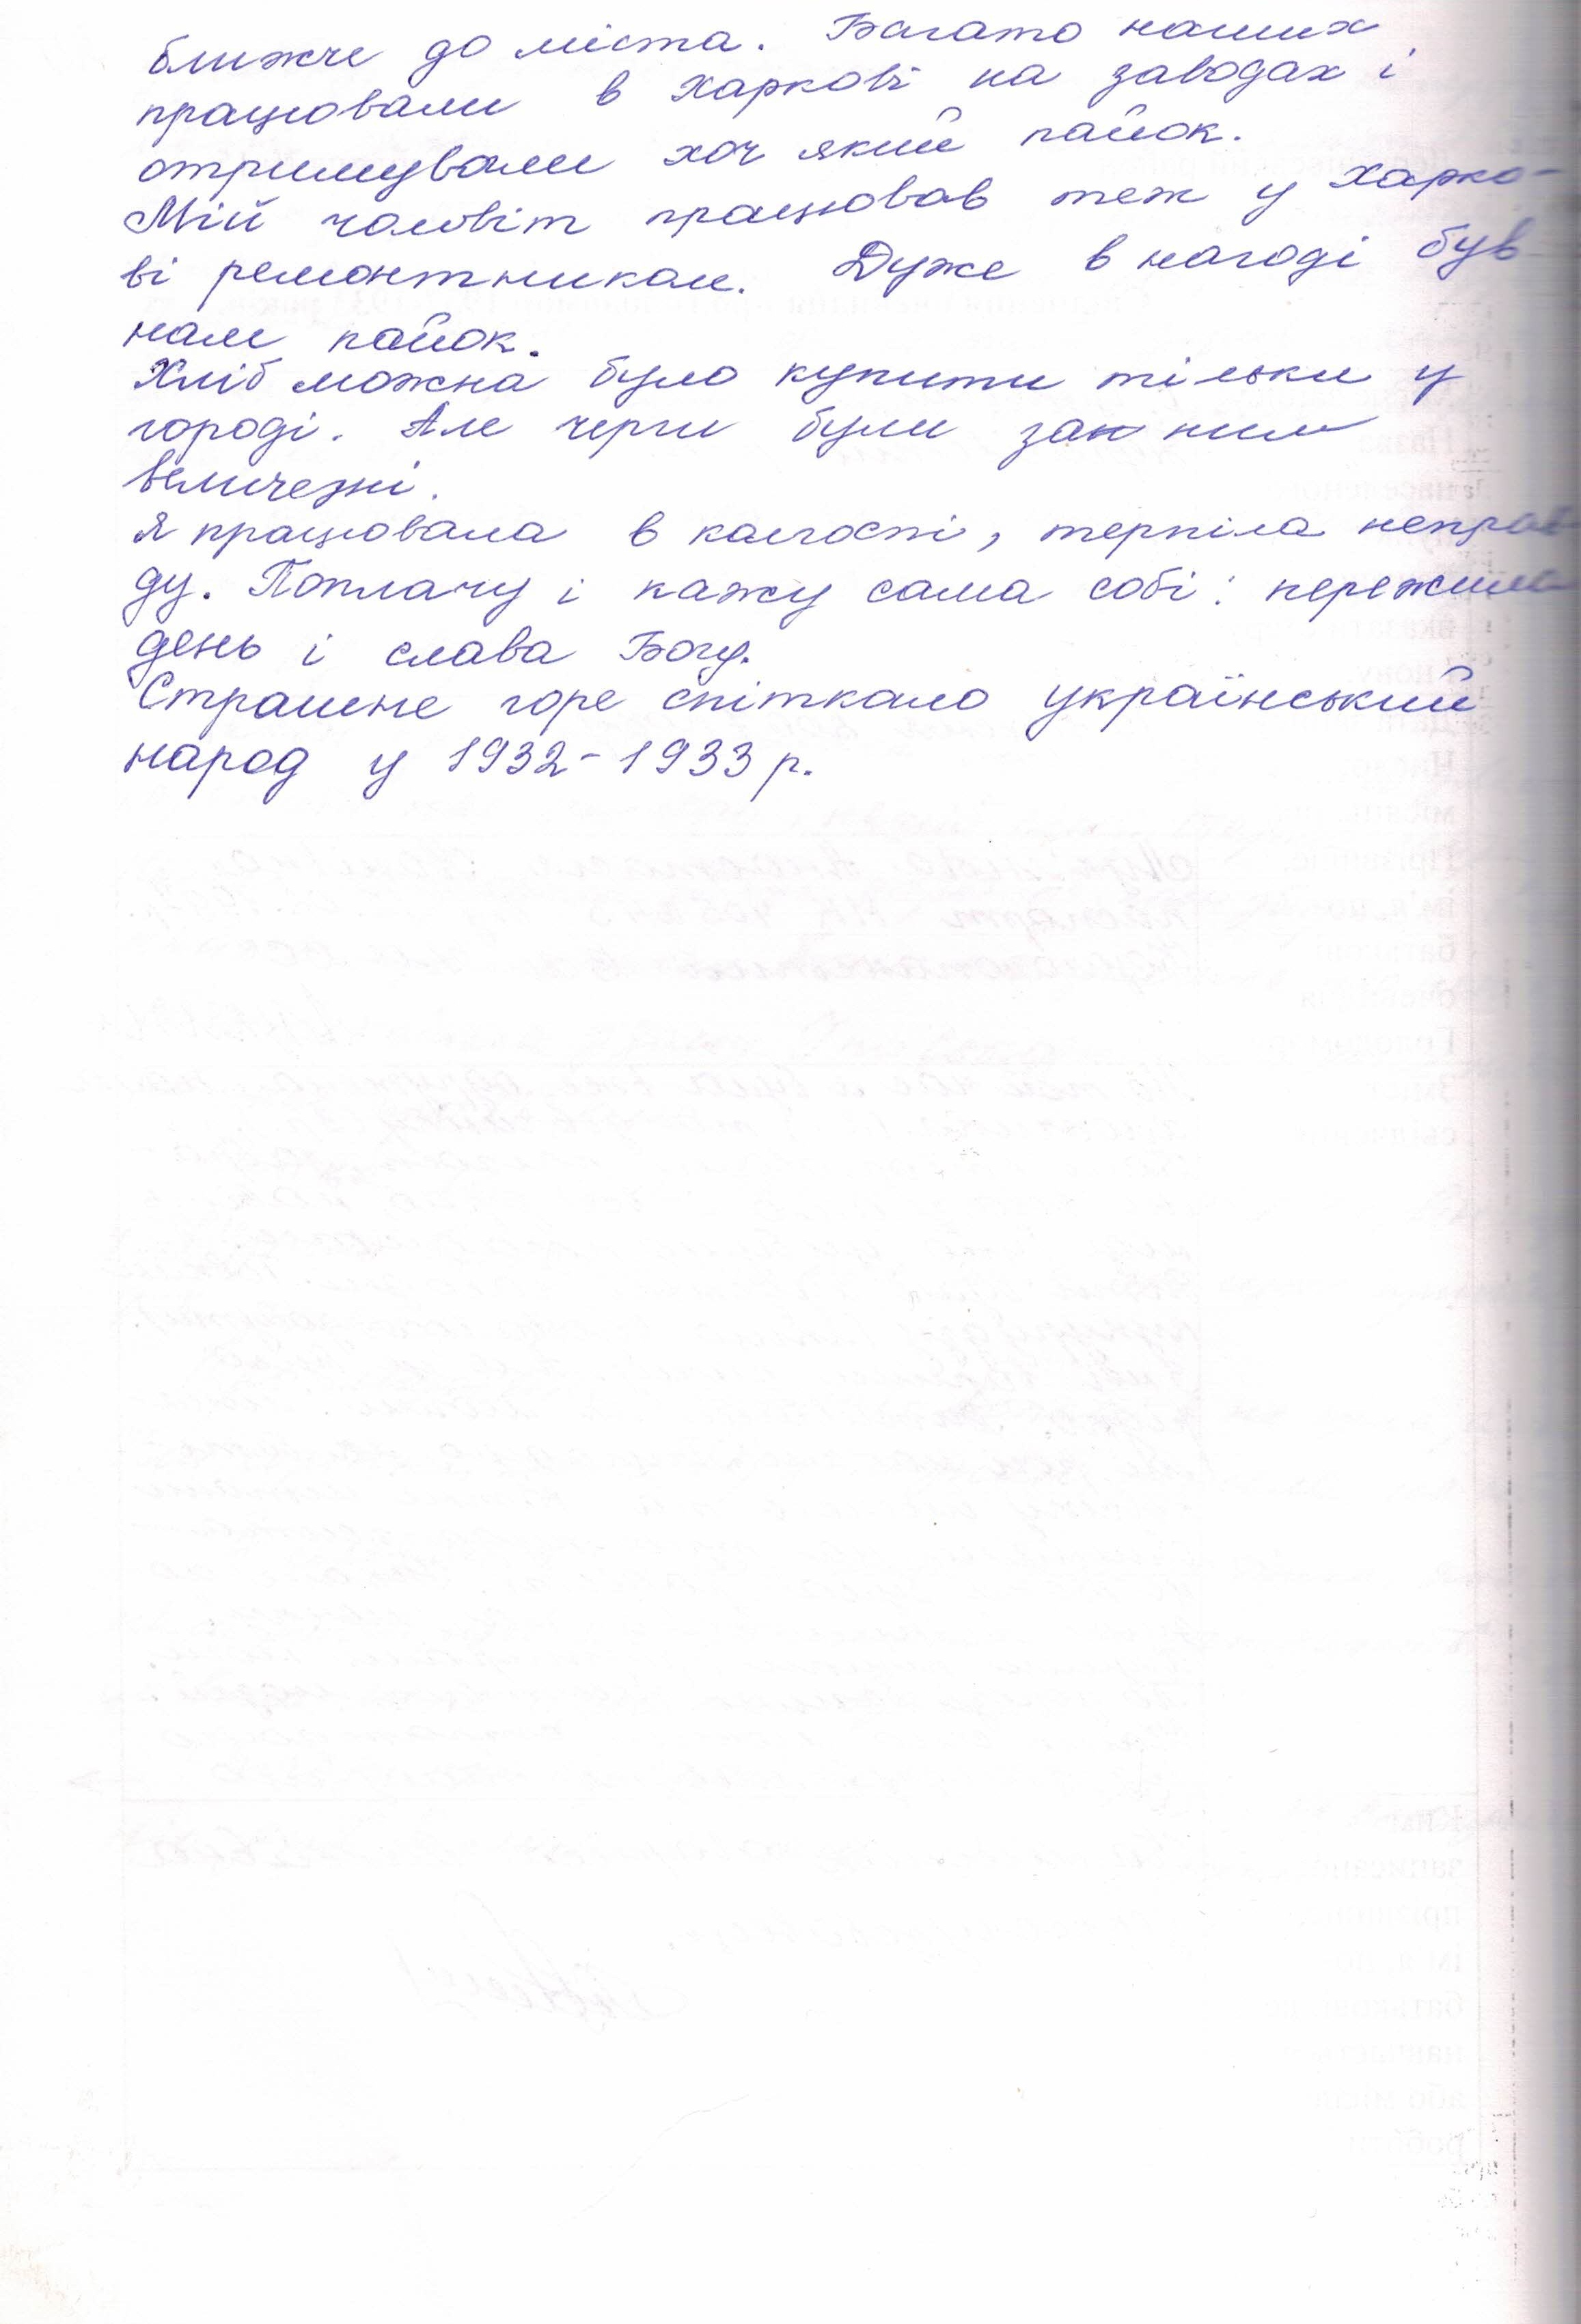 ближче до міста. Багато наших
працювали в Харкові на заводах і
отримували хоч який пайок.
Мій чоловіт працював теж у Харко-
ві ремонтником. Дуже в нагоді був
нам пайок.
Хліб можна було купити тільки у
городі. Але черги були за ним
величезні.
Я працювала в колгоспі, терпіла неправ-
ду. Поплачу і кажу сама собі: пережила
день і слава Богу.
Страшне горе спіткало український
народ у 1932-1933 р.